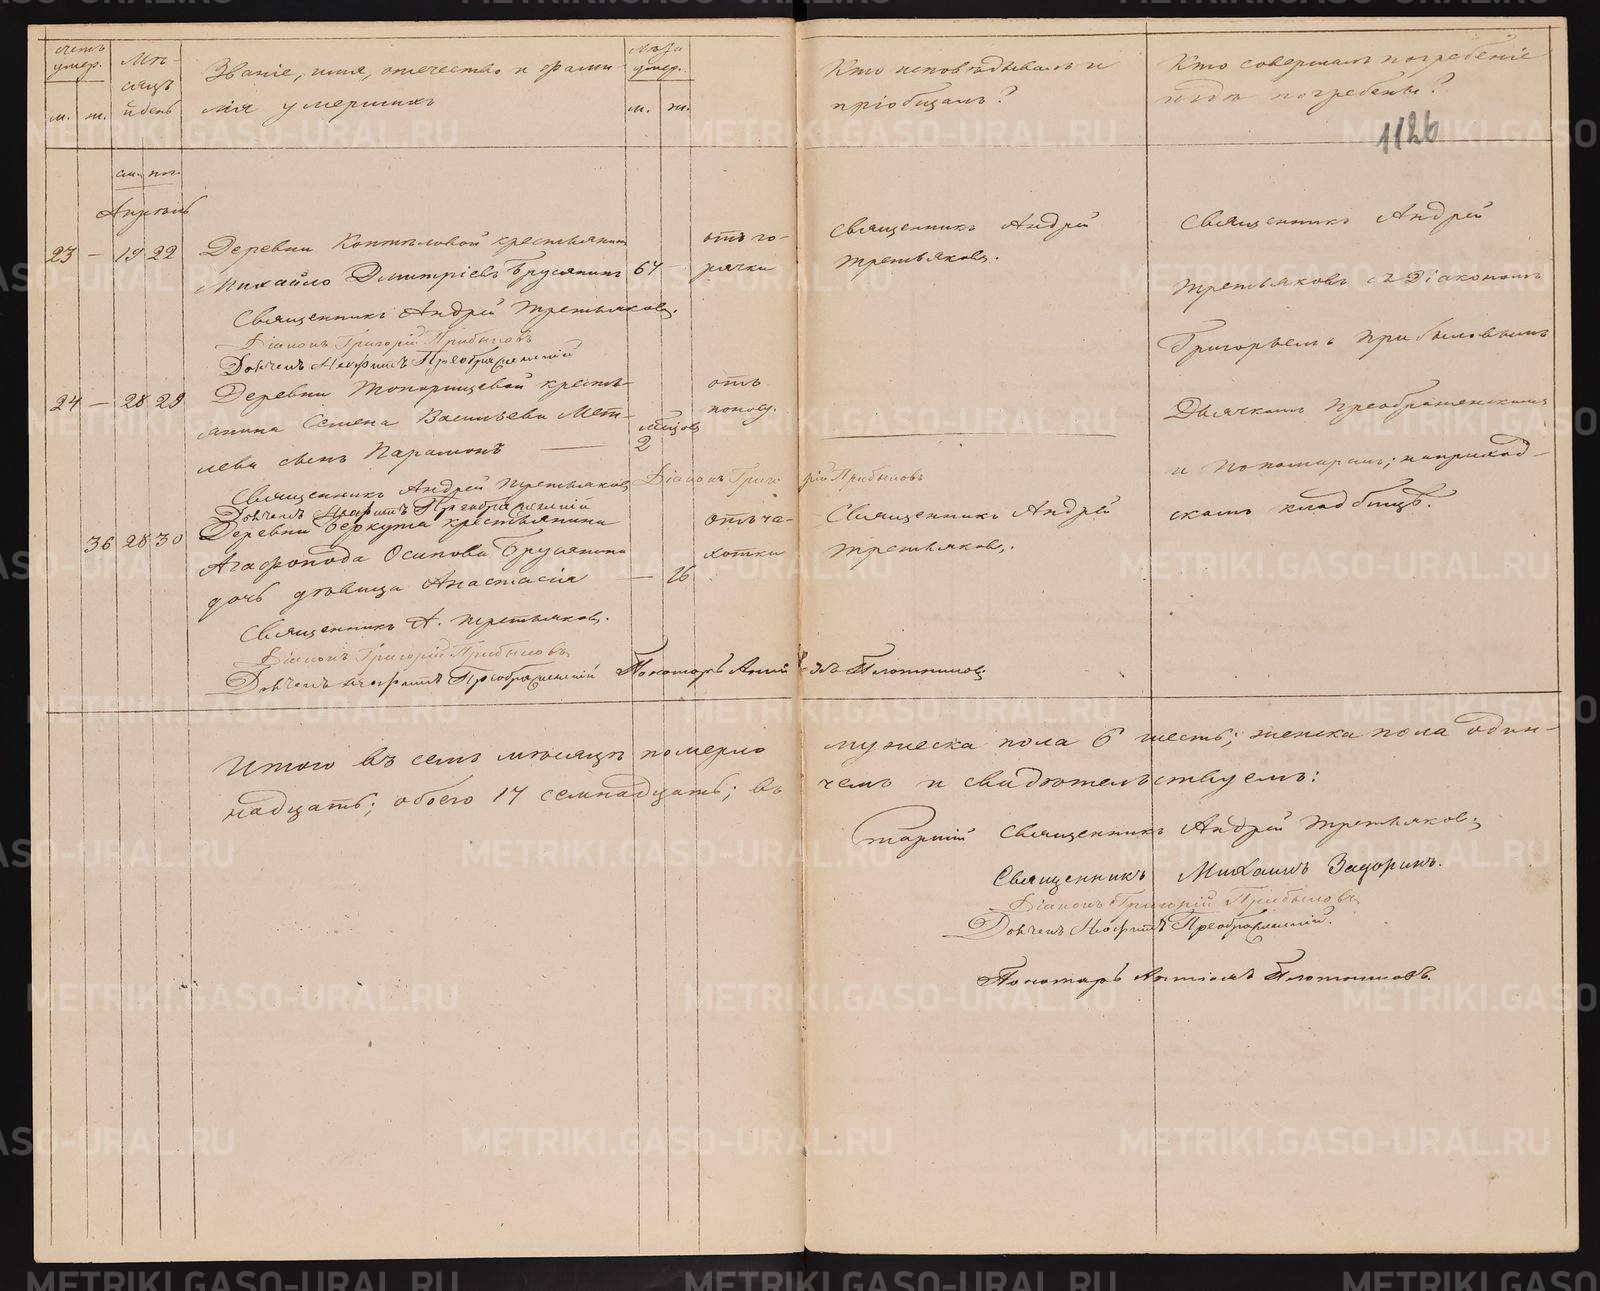 счетъ умер.
м. ж.
Мѣ-
сяцъ
и день
Званіе, имя, отчество и фами-
лія умершихъ
лѣта умер.
м. ж.
Кто исповѣдывалъ и
пріобщалъ?
Кто совершалъ погребеніе
и гдѣ погребены?
1126
ум. пог.
Апрѣль
23 — 19 22 Деревни Коптѣловой крестьянинъ
Михайло Дмитріевъ Брусянинъ 67
отъ го-
рячки
Священникъ Андрей
Третьяковъ.
Священникъ Андрей Третьяковъ.
Діаконъ Григорій Прибыловъ
Дьячекъ Неофитъ Преображенскій
24 — 28 29 Деревни Топорищевой кресть-
янина Семена Васильева Мет-
лева сынъ Парамонъ —
мѣсяцов
2
отъ
поносу.
Священникъ Андрей Третьяковъ Діаконъ Григорій Прибыловъ
Дьячекъ Неофитъ Преображенскій
36 28 30 Деревни Беркута крестьянина
Агафопода Осипова Брусянина
дочь дѣвица Анастасія — 26
отъ ча-
хотки
Священникъ Андрей
Третьяковъ.
Священникъ А. Третьяковъ.
Діаконъ Григорій Прибыловъ
Дьячекъ Неофитъ Преображенскій Пономарь Антипъ Плотниковъ
Священникъ Андрей
Третьяковъ съ Діакономъ
Григорьемъ Прибыловымъ
Дьячкомъ Преображенскимъ
и Пономаремъ; на приход-
скомъ кладбищѣ.
Итого въ семъ мѣсяцѣ померло мужеска пола 6 шесть; женска пола один-
надцать; обоего 17 семнадцать; въ чемъ и свидѣтельствуемъ:
Старшій Священникъ Андрей Третьяковъ
Священникъ Михаилъ Задоринъ.
Діаконъ Григорій Прибыловъ
Дьячекъ Неофитъ Преображенскій.
Пономарь Антипъ Плотниковъ.
METRIKI.GASO-URAL.RU